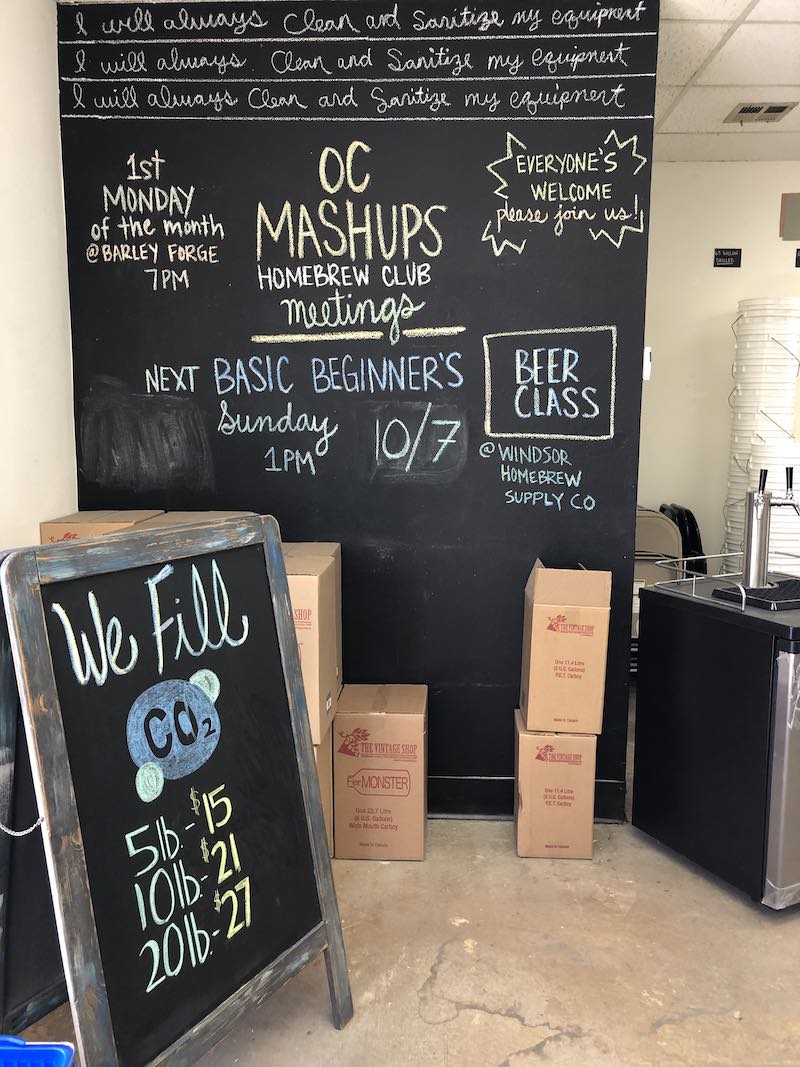 I will always Clean and Sanitize my equipment
I will always Clean and Sanitize my equipment
I will always Clean and Sanitize my equipment
1st
MONDAY
of the month
@BARLEY FORGE
7PM
OC
MASHUPS
HOMEBREW CLUB
meetings
EVERYONE'S
WELCOME
please join us!
NEXT BASIC BEGINNER'S
Sunday
1PM
10/7
BEER
CLASS
@WINDSOR
HOMEBREW
SUPPLY CO
We Fill
CO2
5lb.- $15
10lb- $21
20lb.- $27
SHOP
THE VINTAGE SHOP
FerMONSTER
One 22.7 Litre
(6 U.S. Gallons)
Wide Mouth Carboy
Made in Canada
THE VINTAGE SHOP
One 11.4 Litre
(3 U.S. Gallons)
P.E.T. Carboy
Made in Canada
THE VINTAGE SHOP
One 11.4 Litre
(3 U.S. Gallons)
P.E.T. Carboy
Made in Canada
GALLON
DRILLED